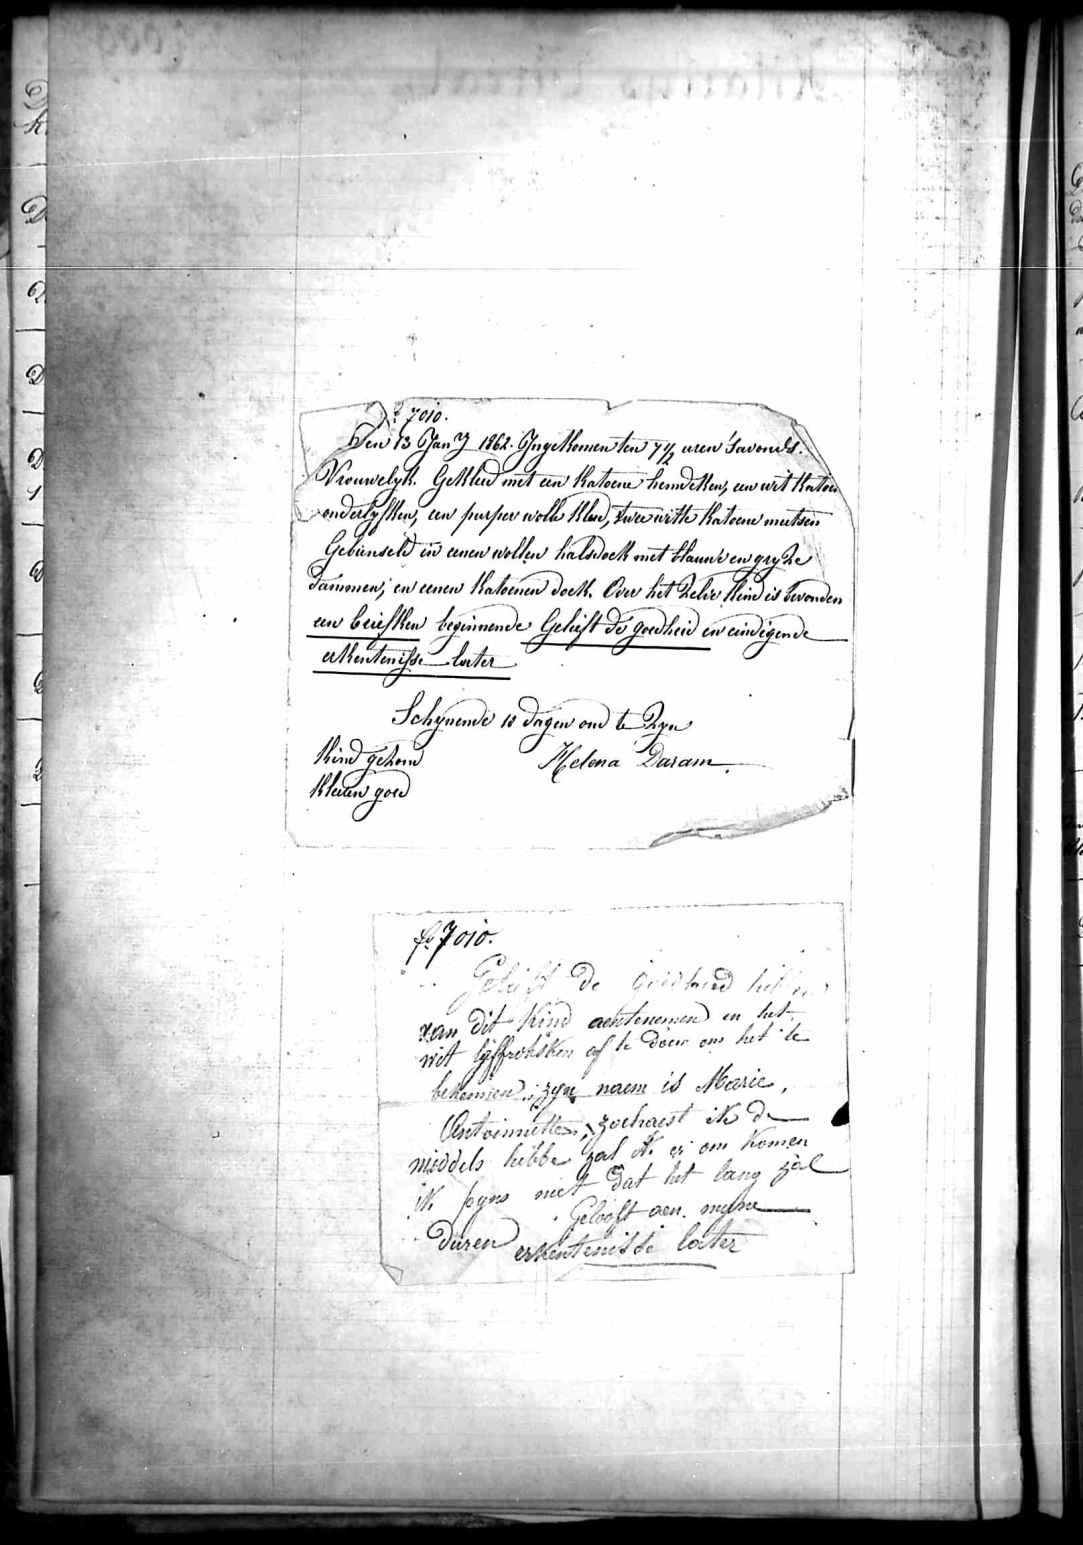 fº 7010.
Den 13 Jany 1862. Ingekomen ten 7 1/2 uren 'savonds.
Vrouwelyk. Gekleed met een katoene hemdeken, een wit katoen
onderlyfken, een purper wolle kleed, twee witte katoene mutsen
Gebunseld in eenen wollen halsdoek met blauwe en gryze
dammen, en eenen katoenen doek. Over het zelve kind is bevonden
een briefken beginnende Gelieft de goedheid en eindigende
erkentenisse later
Schynende 10 dagen oud te zyn
Kind gezond
Helena Daram.
Kleeren goed
fº 7010.
Gelieft de goedheid hebben
van dit kind aentenemen en het
wit lyffroksken af te doen om het te
bekomen, zyn naem is Marie,
Antoinette, zoohaest ik de
middels hebbe zal ik er om komen
ik pyns niet dat het lang zal
duren Gelooft aen myne
erkentenisse later